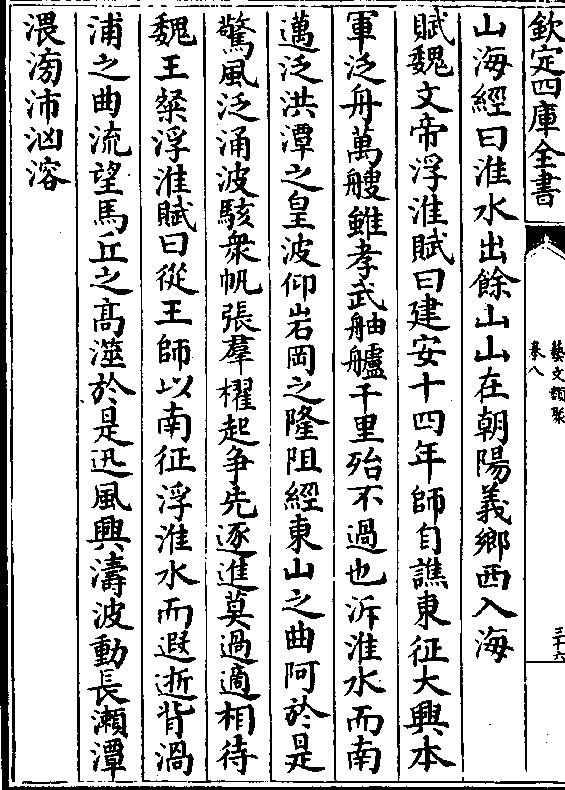 欽定四庫全書
藝文類聚
卷八
三十六
山海經曰淮水出餘山山在朝陽義鄉西入海
賦魏文帝浮淮賦曰建安十四年師自譙東征大興水
軍泛舟萬艘雖孝武舳艫千里殆不過也泝淮水而南
邁泛洪潭之皇波仰岩岡之隆阻經東山之曲阿於是
驚風泛涌波駭衆帆張羣櫂起争先逐進莫過適相待
魏王粲浮淮賦曰從王師以南征浮淮水而遐逝背渦
浦之曲流望馬丘之高澨於是迅風興濤波動長瀨潭
渨滂沛汹溶